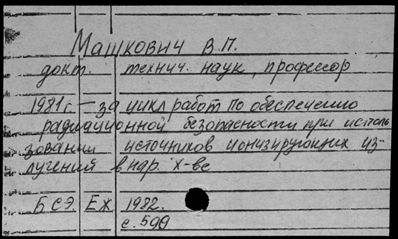 Машкович В.П.
докт. технич. наук, профессор
1981г. — за цикл работ по обеспечению
радиационной безопасности при исполь
зовании источников ионизирующих из-
лучений в нар. х-ве
БСЭ Еж. 1982.
с. 599